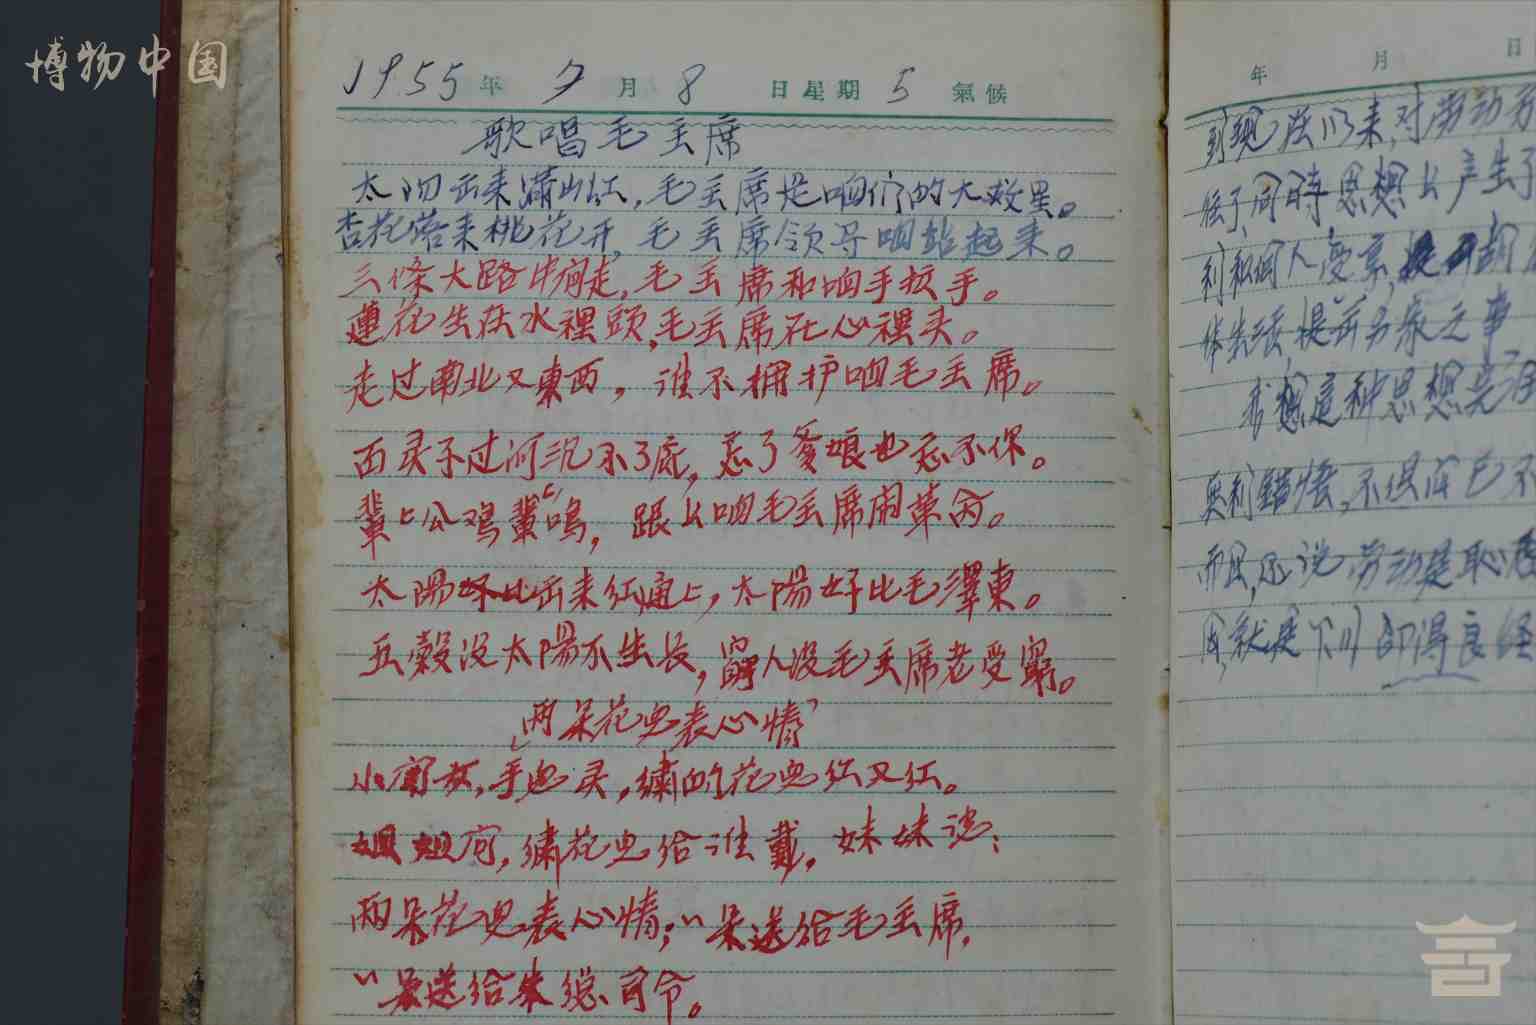 博物中国
1955年 7月 8日 星期 5 氣候
歌唱毛主席
太阳出来满山红,毛主席是咱们的大救星。
杏花落来桃花开,毛主席领导咱站起来。
三條大路中间走,毛主席和咱手拉手。
蓮花生在水裡頭,毛主席在心裡头。
走过南北又東西,谁不拥护咱毛主席。
面 不过河沉不了底,忘了爹娘也忘不你。
公鸡 鸣,跟上咱毛主席闹革命。
太陽好比出来红通上,太陽好比毛澤東。
五穀没太陽不生长,窮人没毛主席老受窮。
“两朵花兒表心情”
手兒灵,繡的花兒红又红。
姐姐问,繡花兒给谁戴,妹妹说:
两朵花兒表心情;一朵送给毛主席,
一朵送给朱總司令。
年 月 日
到现在以来,对劳动
同時思想上产生了
利和個人
提出另
我想這种思想
錯悞,不但
而且,还说劳动是恥
就是